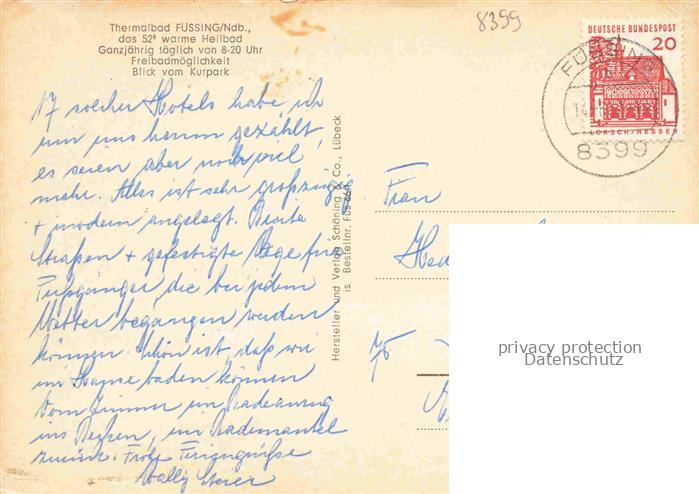 Thermalbad FÜSSING/Ndb.,
das 52° warme Heilbad
Ganzjährig täglich von 8-20 Uhr
Freibadmöglichkeit
Blick vom Kurpark
8399
17 solcher Hotels habe ich
um uns herum gezählt,
es seien aber noch viel
mehr. Alles ist sehr großzügig
+ modern angelegt. Breite
Straßen + gefestigte Wege für
Fußgänger, die bei jedem
Wetter begangen werden
können. Schön ist, daß wir
im Hause baden können
Vom Zimmer im Badeanzug
ins Becken, im Bademantel
zurück. Frohe Feriengrüße
Wally
Hersteller und Verlag Schöning & Co., Lübeck
is. Bestellnr. Füs
DEUTSCHE BUNDESPOST
20
LORSCH/HESSEN
FÜSSING
8399
Frau
75
privacy protection
Datenschutz